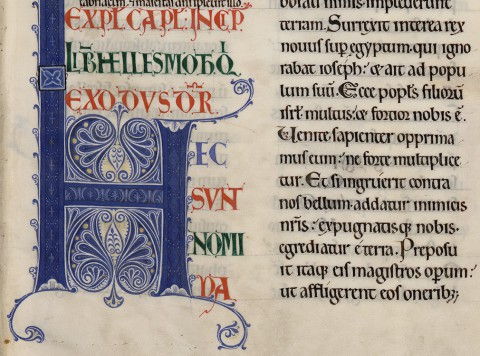 EXPL CAPL INCP
LIB HELLESMOTH Q
EXODUS DR
HEC
SUNT
NOMI
NA
terram. Surrexit interea rex
novus sup egyptum qui igno
rabat ioseph: & ait ad popu
lum suū. Ecce popls filiorū
isrł multus: & fortior nobis ē.
Venite sapienter opprima
mus eum: ne forte multiplice
tur. Et si ingruerit contra
nos bellum: addatur inimicis
nr̄is: expugnatisq nobis.
egrediatur e terra. Preposu
it itaq eis magistros operum:
ut affligerent eos oneribz;